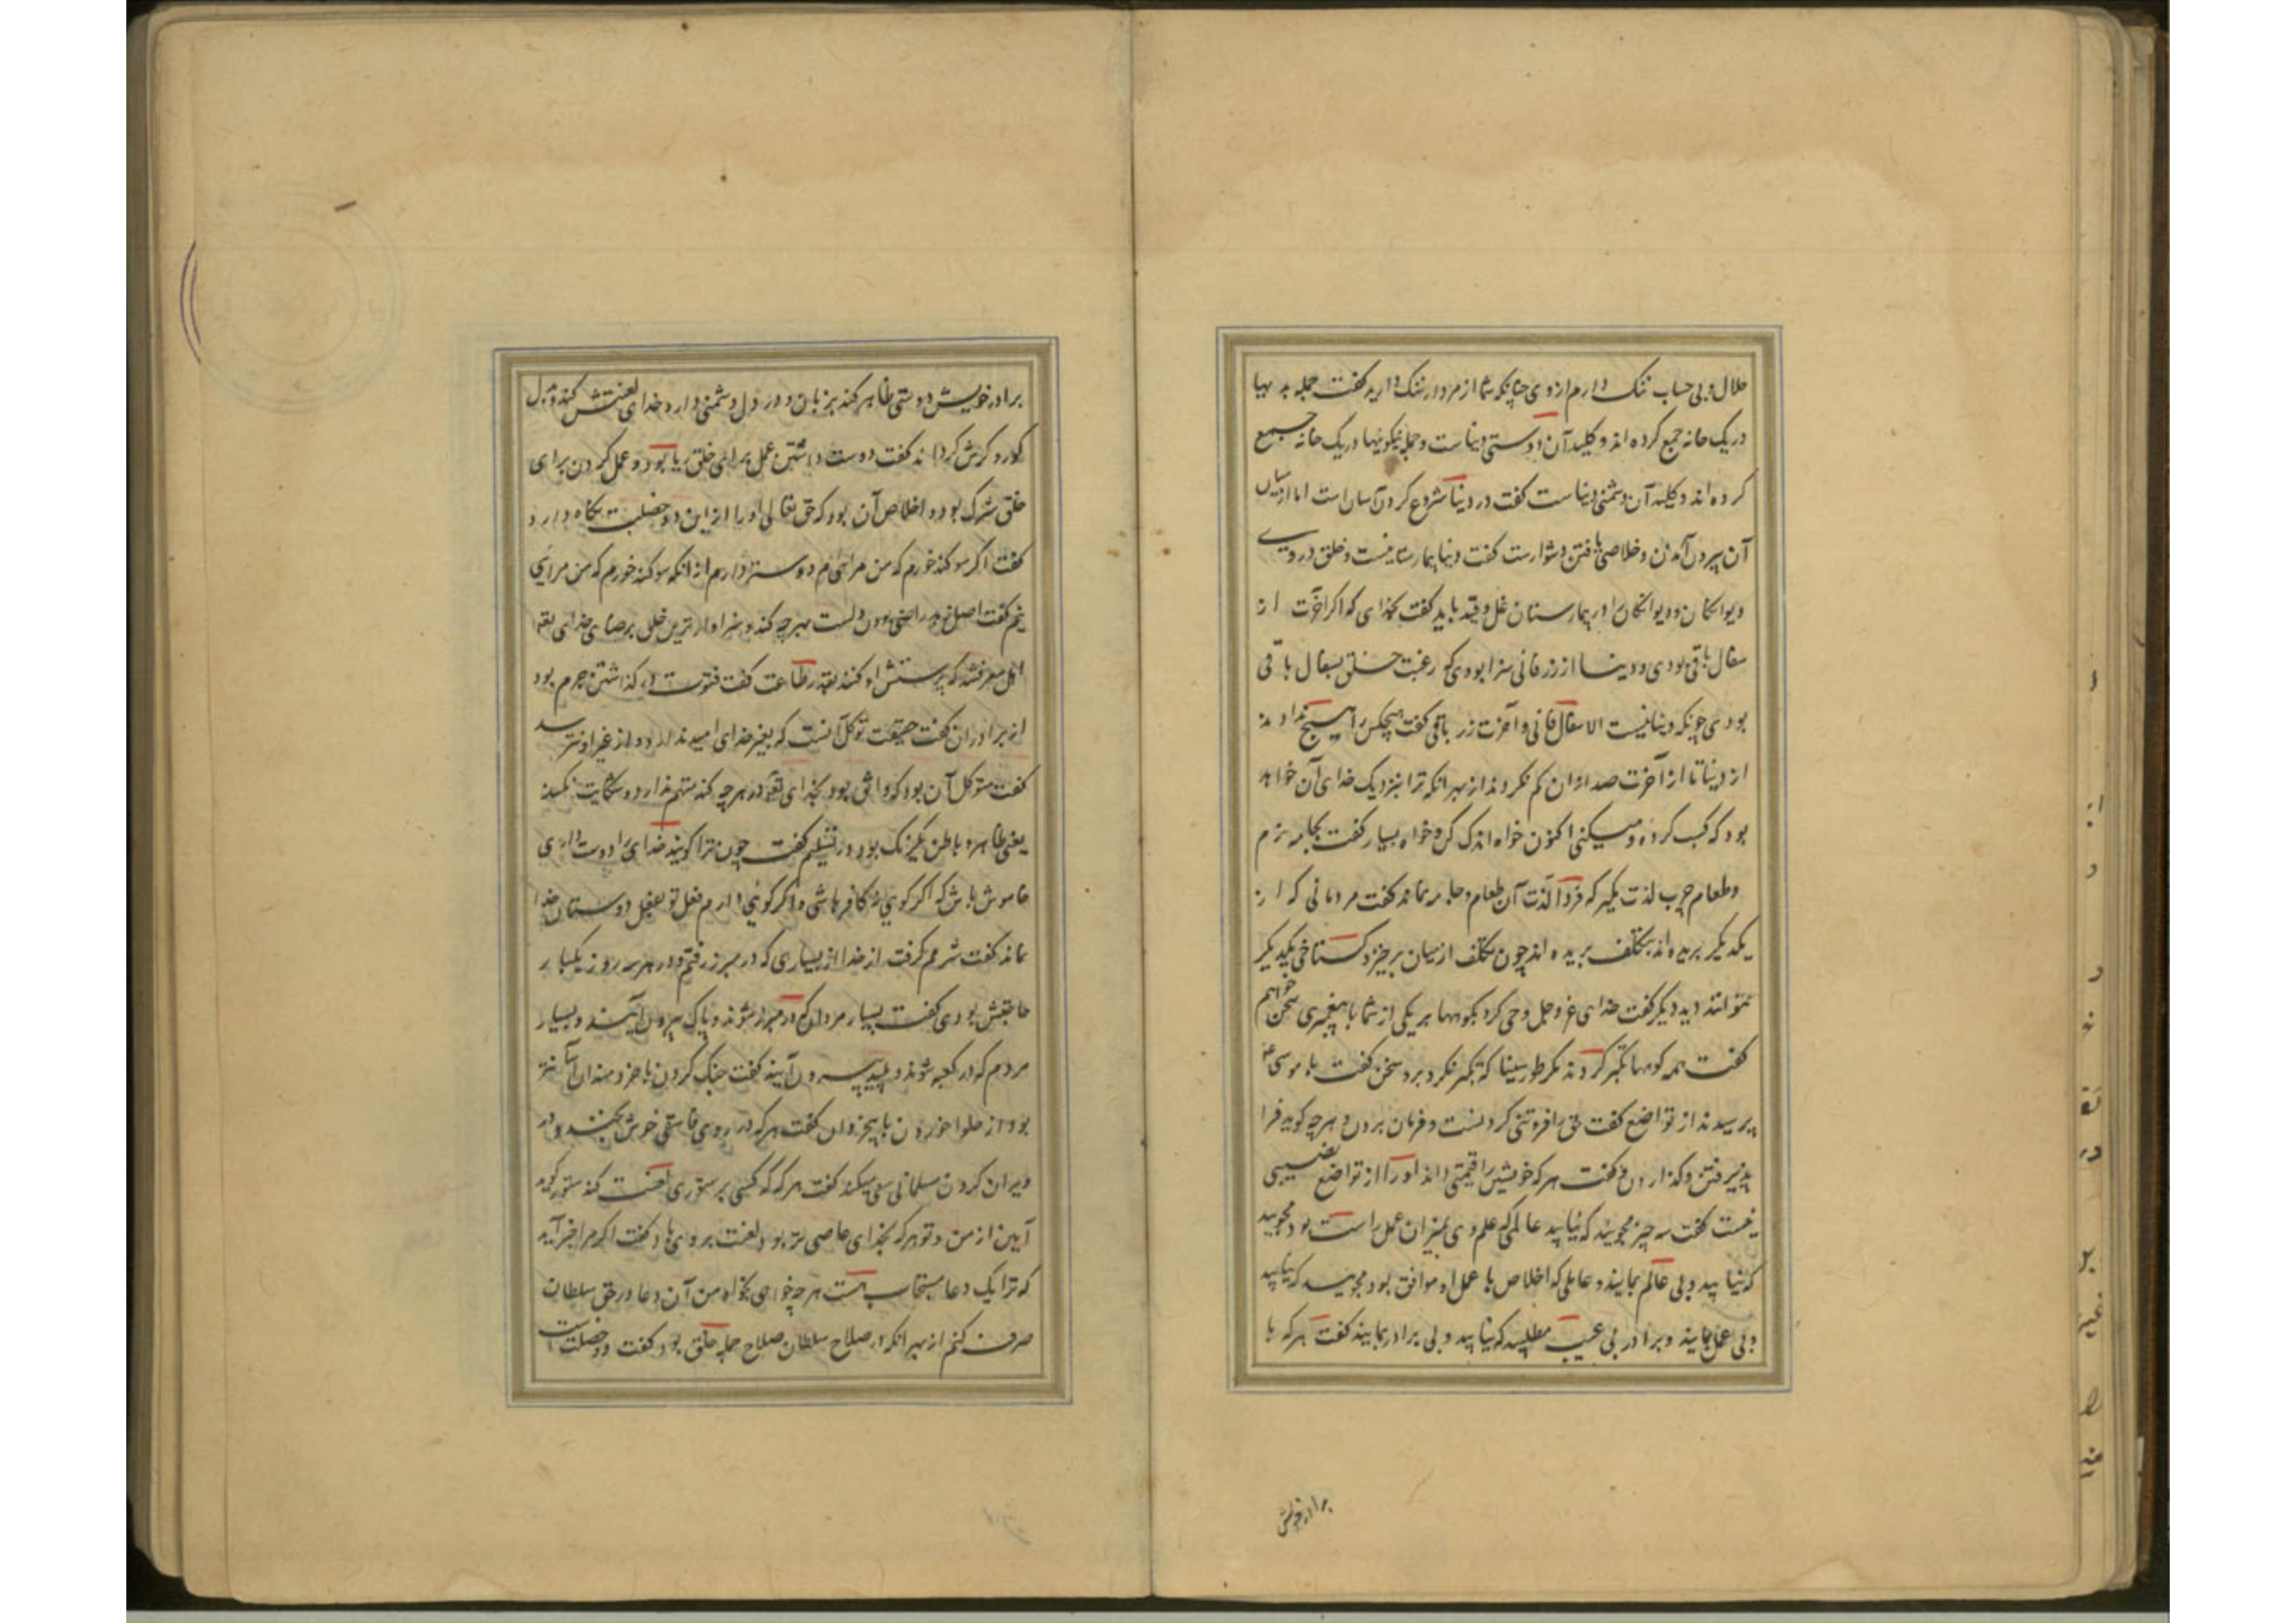 حلال و بی حساب ننگ دارم از وی چنانکه شما از مردار ننگ دارید گفت جمله بدیها
در یک خانه جمع کرده اند و کلید آن دوستی دنیاست و جمله نیکوئیها در یک خانه جمع
کرده اند و کلید آن دشمنی دنیاست گفت در دنیا شروع کردن آسان است اما از میان
آن بیرون آمدن و خلاصی یافتن دشوارست گفت دنیا بیمارستانیست و خلق در وی
دیوانگان و دیوانگان را در بیمارستان غل و قید باید گفت بخدای که اگر آخرت از
سفال باقی بودی و دنیا از زر فانی سزا بودی که رغبت خلق بسفال باقی
بودی چونکه دنیا نیست الا سفال فانی و آخرت زر باقی گفت هیچکس را هیچ ندادند
از دنیا تا از آخرت صد از ان کم نکردند از بهر انکه ترا بنزدیک خدای آن خواهد
بود که کسب کرده و میکنی اکنون خواه اندک کن خواه بسیار گفت بجامه نرم
و طعام چرب لذت مگیر که فردا لذت آن طعام و جامه نماند گفت مردمانی که از
یکدیگر بریده اند بتکلف بریده اند چون تکلف از میان برخیزد گستاخی یکدیگر
بتوانند دید دیگر گفت خدای عز و جل وحی کرد بکوهها بر یکی از شما با پیغمبری سخن خواهم
گفت همه کوهها تکبر کردند مگر طور سینا که تکبر نکرد برو سخن گفت با موسی ع
پرسیدند از تواضع گفت حق را فروتنی کردنست و فرمان بردن و هرچه گوید فرا
پذیرفتن و گذاردن و گفت هر که خویش را قیمتی داند او را از تواضع نصیبی
نیست گفت سه چیز مجویید که نیابید عالمی که علم وی بمیزان عمل راست بود مجویید
که نیابید و بی عالم بمانید و عاملی که اخلاص با عمل او موافق بود مجویید که نیابید
و بی عمل بمانید و برادر بی عیب مطلبید که نیابید و بی برادر بمانید گفت هر که با
برادر خویش
برادر خویش دوستی ظاهر کند بزبان و در دل دشمنی دارد خدای لعنتش کند و بدل
کور و کرش گرداند گفت دوست داشتن عمل برای خلق ریا بود و عمل کردن برای
خلق شرک بود و اخلاص آن بود که حق تعالی او را از این دو خصلت نگاه دارد
گفت اگر سوگند خورم که من مرائی ام دوستر دارم از انکه سوگند خورم که من مرایی
نیم گفت اصل زهد راضی بودن ولست بهر چه کند و سزاوارترین خلق برضای خدای تعه
اهل معرفتند که پرستش او کنند بقدر طاعت گفت فتوت در گذاشتن جرم بود
از برادران گفت حقیقت توکل آنست که بغیر خدای امید ندارد و از غیر او نترسد
گفت متوکل آن بود که واثق بود بخدای تعه در هرچه کند متهم ندارد و شکایت نکند
یعنی ظاهر و باطن یکرنگ بود در تسلیم گفت چون ترا گویند خدای را دوست داری
خاموش باش که اگر گویی نه کافر باشی و اگر گویی دارم فعل تو بفعل دوستان خدا
نماند گفت شرمم گرفت از خدا از بسیاری که در مبرز رفتم و در هر سه روز یکبار
حاجتش بودی گفت بسیار مردان که در مبرز شوند و پاک بیرون آیند و بسیار
مردم که در کعبه شوند و پلید بیرون آیند گفت جنگ کردن با خردمندان آسانتر
بود از حلوا خوردن با بیخردان گفت هر که در روی فاسقی خوش بخندد در
ویران کردن مسلمانی سعی میکند گفت هر گه که کسی بر ستوری لعنت کند ستور گوید
آمین از من و تو هر که بخدای عاصی تر بود لعنت بر وی باد گفت اگر مرا خبر آید
که ترا یک دعا مستجاب است هرچه خواهی بخواه من آن دعا در حق سلطان
صرف کنم از بهر انکه در صلاح سلطان صلاح جمله خلق بود گفت دو خصلت است